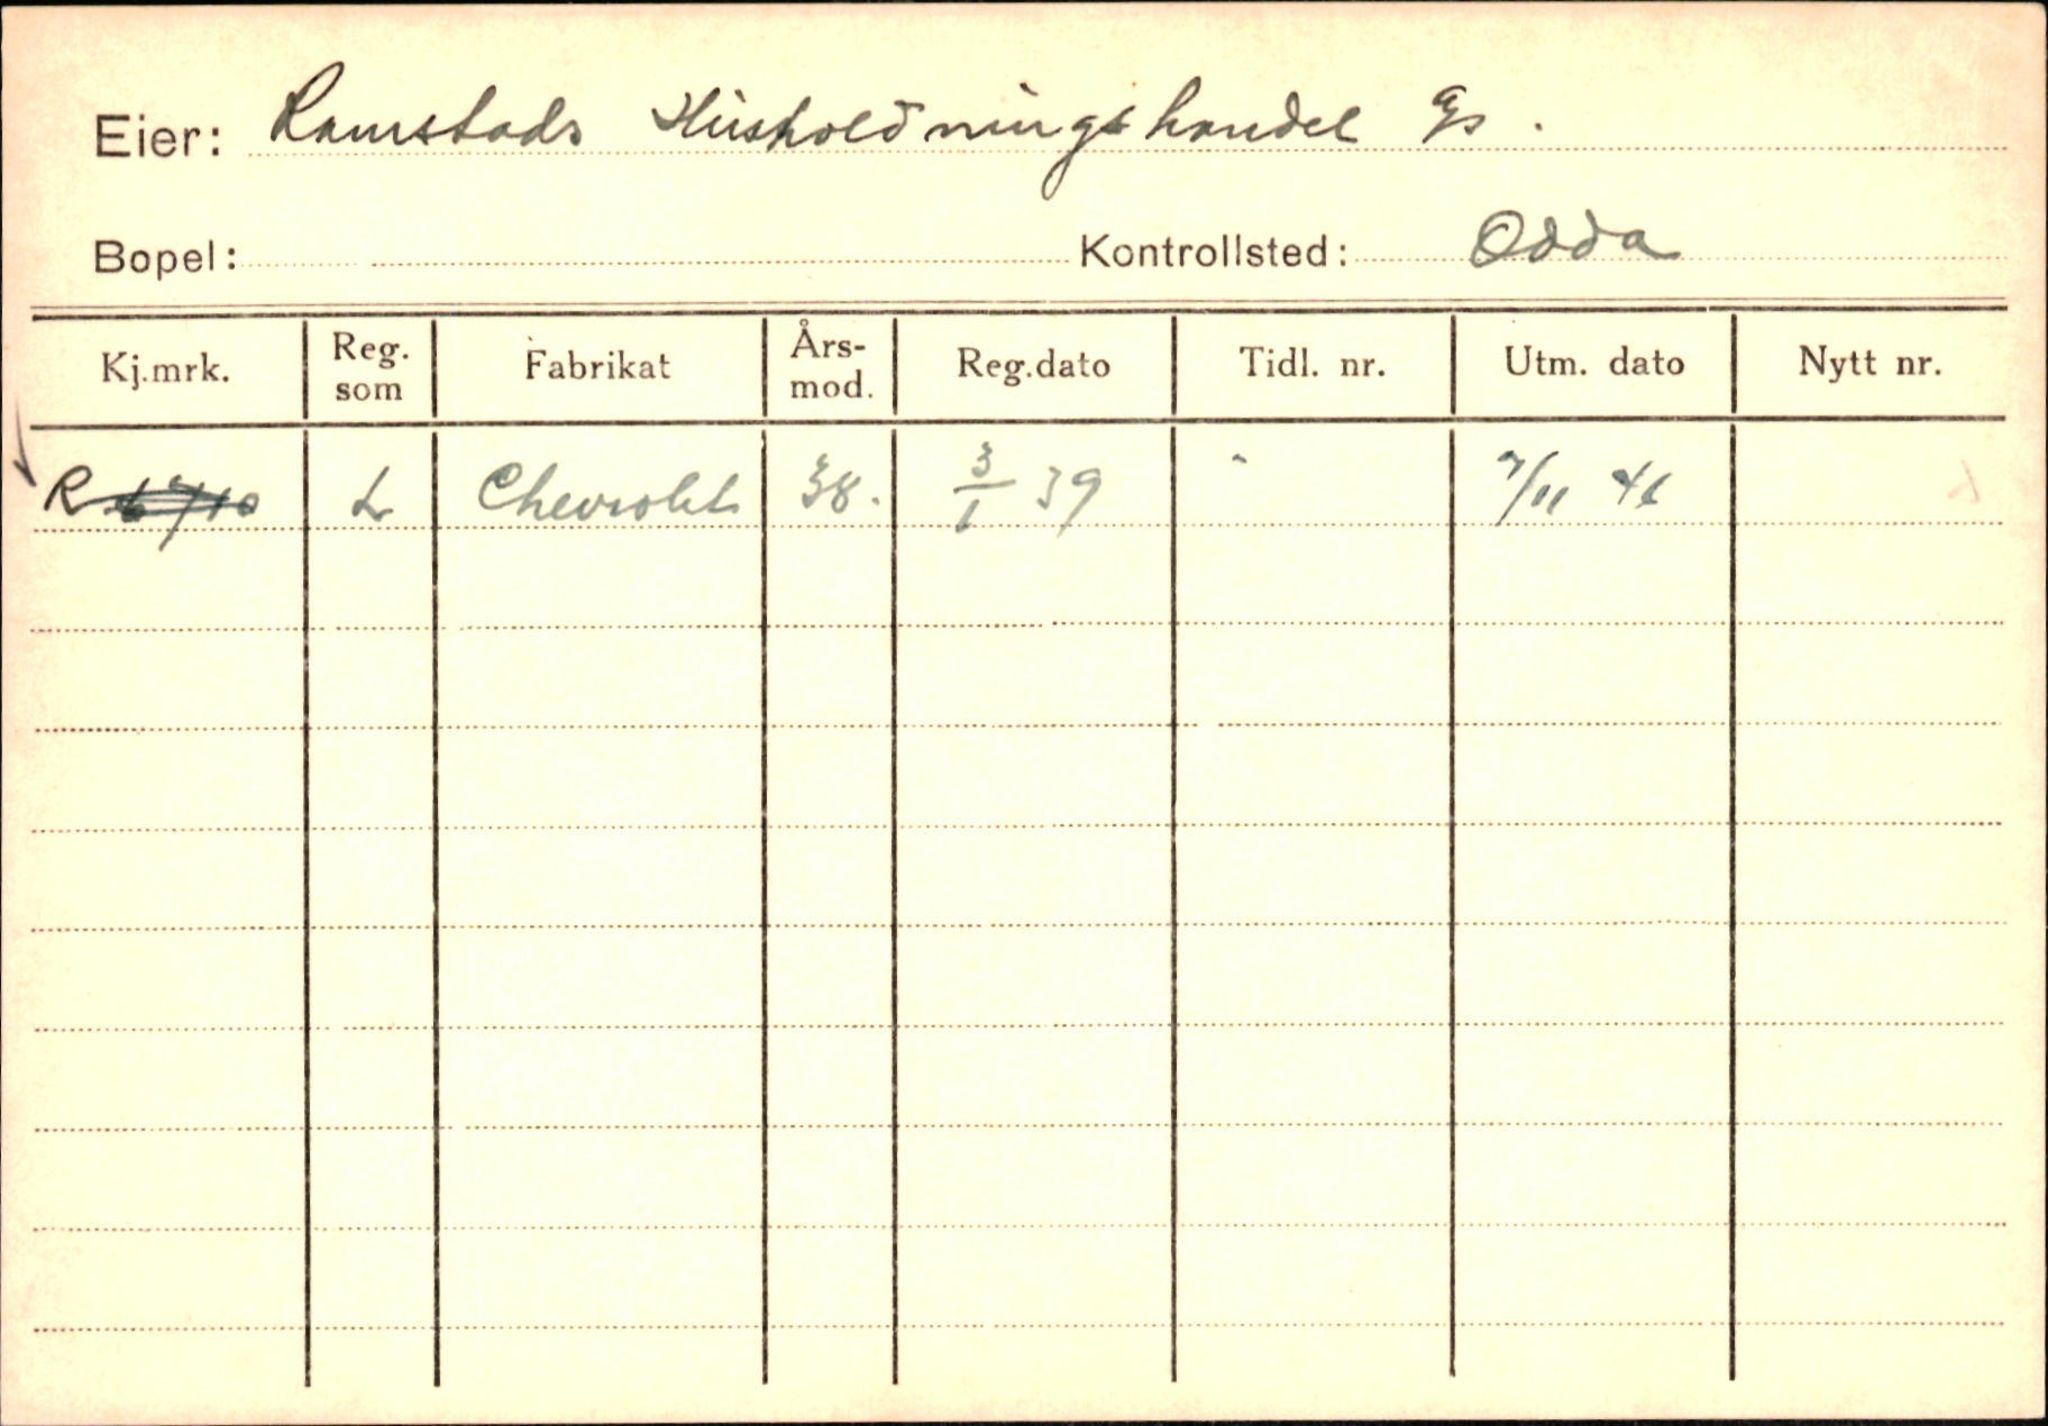 Eier: Ramstads Husholdningshandel A/s.
Bopel: Kontrollsted: Odda
Kj.mrk. Reg. som Fabrikat Års-mod. Reg.dato Tidl. nr. Utm. dato Nytt nr.
R L Chevrolet 38. 3/1 39 - 7/11 46